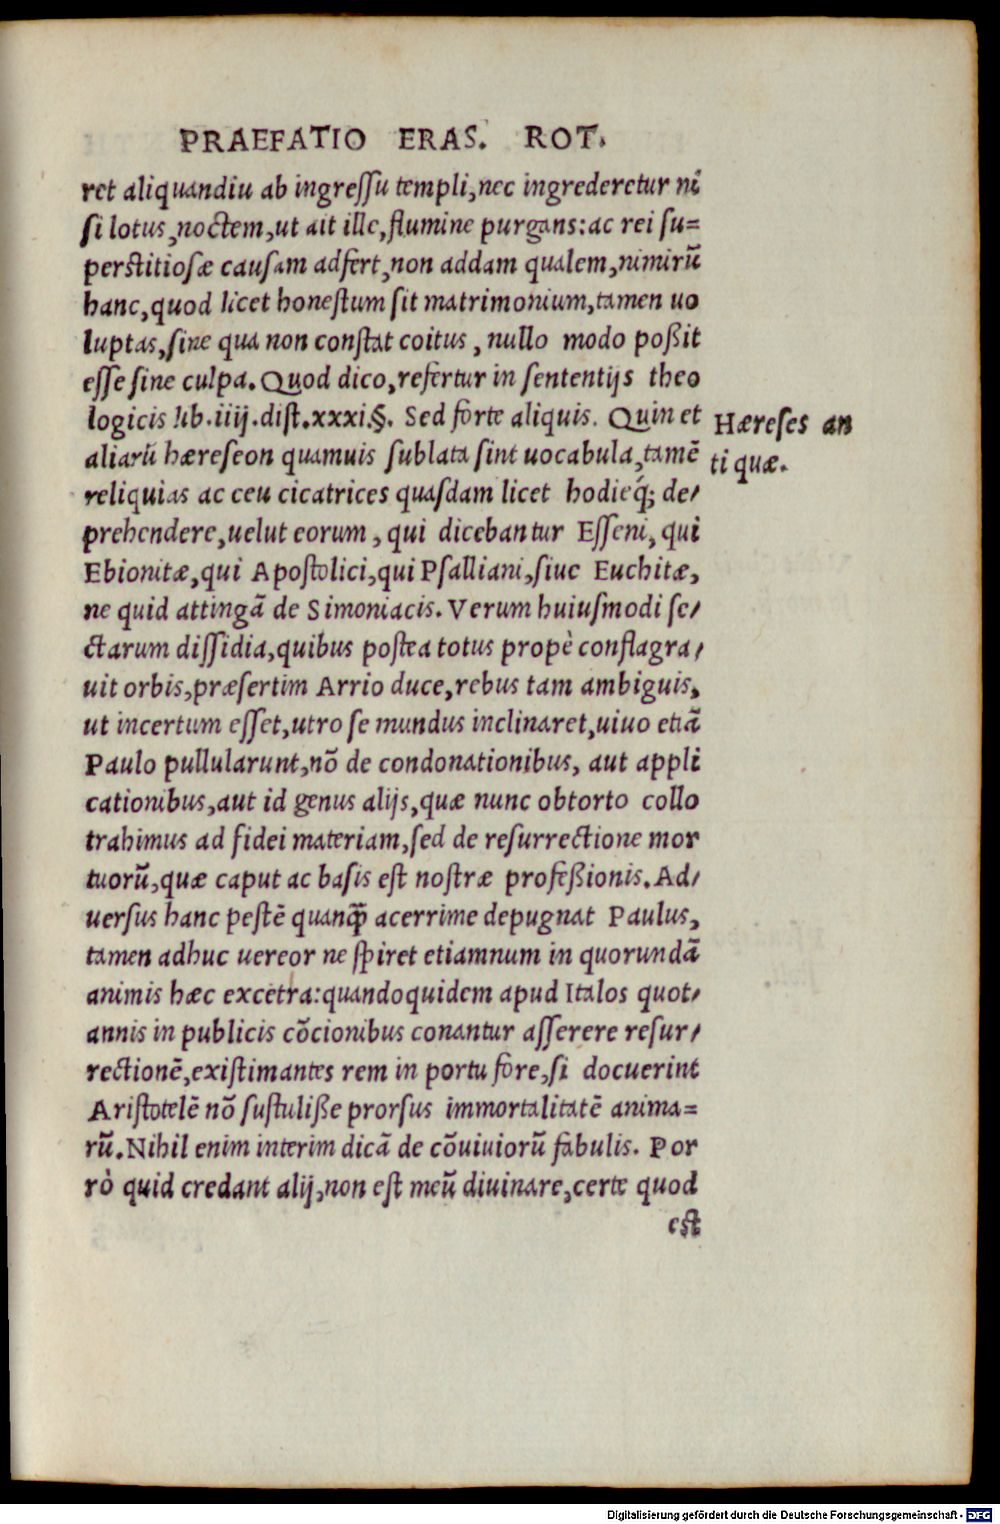 PRAEFATIO ERAS. ROT.
ret aliquandiu ab ingreſſu templi, nec ingrederetur ni
ſi lotus, noctem, ut ait ille, flumine purgans: ac rei ſu=
perſtitioſæ cauſam adfert, non addam qualem, nimirũ
hanc, quod licet honeſtum ſit matrimonium, tamen uo
luptas, ſine qua non conſtat coitus, nullo modo poßit
eſſe ſine culpa. Quod dico, refertur in ſententijs theo
logicis lib. iiij. diſt. xxxi. §. Sed forte aliquis. Quin et
aliarũ hæreſeon quamuis ſublata ſint uocabula, tamẽ
reliquias ac ceu cicatrices quaſdam licet hodieq́; de/
prehendere, uelut eorum, qui dicebantur Eſſeni, qui
Ebionitæ, qui Apoſtolici, qui Pſalliani, ſiue Euchitæ,
ne quid attingã de Simoniacis. Verum huiuſmodi ſe/
ctarum diſſidia, quibus poſtea totus propè conflagra/
uit orbis, præſertim Arrio duce, rebus tam ambiguis,
ut incertum eſſet, utro ſe mundus inclinaret, uiuo etiã
Paulo pullularunt, nõ de condonationibus, aut appli
cationibus, aut id genus alijs, quæ nunc obtorto collo
trahimus ad fidei materiam, ſed de reſurrectione mor
tuorũ, quæ caput ac baſis eſt noſtræ profeßionis. Ad/
uerſus hanc peſtẽ quanq̃ acerrime depugnat Paulus,
tamen adhuc uereor ne ſpiret etiamnum in quorundã
animis hæc excetra: quandoquidem apud Italos quot/
annis in publicis cõcionibus conantur aſſerere reſur/
rectionẽ, exiſtimantes rem in portu fore, ſi docuerint
Ariſtotelẽ nõ ſuſtuliße prorſus immortalitatẽ anima=
rũ. Nihil enim interim dicã de cõuiuiorũ fabulis. Por
rò quid credant alij, non eſt meũ diuinare, certe quod
eſt
Hæreſes an
tiquæ.
Digitalisierung gefördert durch die Deutsche Forschungsgemeinschaft - DFG